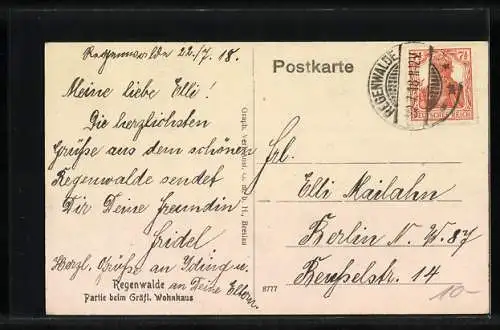 Regenwalde 22./7. 18.
Meine liebe Elli!
Die herzlichsten
Grüße aus dem schönen
Regenwalde sendet
Dir Deine Freundin
Fridel
Herzl. Grüße an
an Deine Eltern.
Regenwalde
Partie beim Gräfl. Wohnhaus
Graph. Verl.-Anst. G. m. b. H., Breslau
8777
Postkarte
REGENWALDE
7½
Frl.
Elli Mailahn
Berlin N. W. 87
Beusselstr. 14
10-